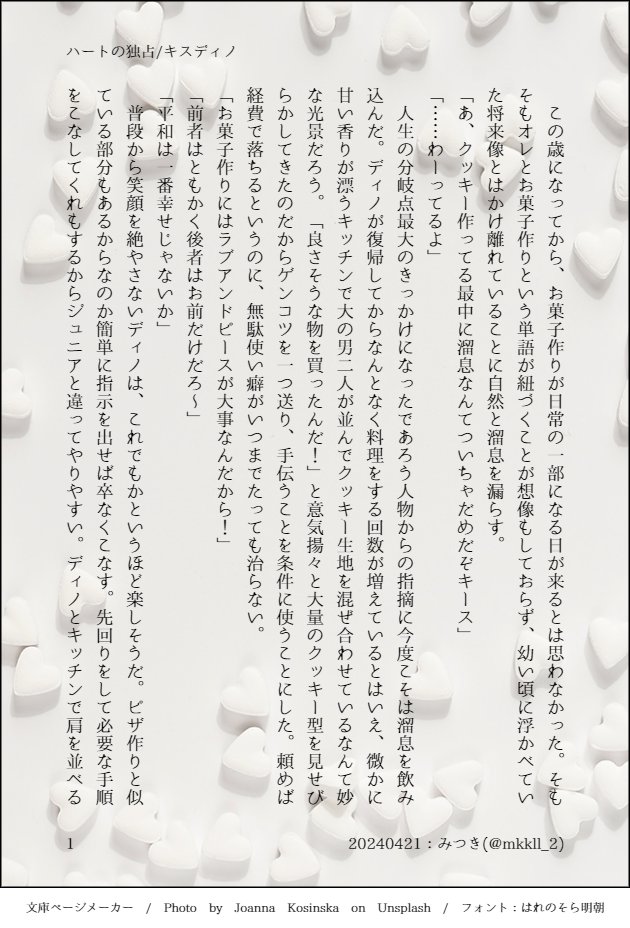 ハートの独占/キスディノ
　この歳になってから、お菓子作りが日常の一部になる日が来るとは思わなかった。そも
そもオレとお菓子作りという単語が紐づくことが想像もしておらず、幼い頃に浮かべてい
た将来像とはかけ離れていることに自然と溜息を漏らす。
「あ、クッキー作ってる最中に溜息なんてついちゃだめだぞキース」
「……わーってるよ」
　人生の分岐点最大のきっかけになったであろう人物からの指摘に今度こそは溜息を飲み
込んだ。ディノが復帰してからなんとなく料理をする回数が増えているとはいえ、微かに
甘い香りが漂うキッチンで大の男二人が並んでクッキー生地を混ぜ合わせているなんて妙
な光景だろう。「良さそうな物を買ったんだ！」と意気揚々と大量のクッキー型を見せび
らかしてきたのだからゲンコツを一つ送り、手伝うことを条件に使うことにした。頼めば
経費で落ちるというのに、無駄使い癖がいつまでたっても治らない。
「お菓子作りにはラブアンドピースが大事なんだから！」
「前者はともかく後者はお前だけだろ〜」
「平和は一番幸せじゃないか」
　普段から笑顔を絶やさないディノは、これでもかというほど楽しそうだ。ピザ作りと似
ている部分もあるからなのか簡単に指示を出せば卒なくこなす。先回りをして必要な手順
をこなしてくれもするからジュニアと違ってやりやすい。ディノとキッチンで肩を並べる
20240421：みつき(@mkkll_2)
1
文庫ページメーカー　/　Photo　by　Joanna　Kosinska　on　Unsplash　/　フォント：はれのそら明朝